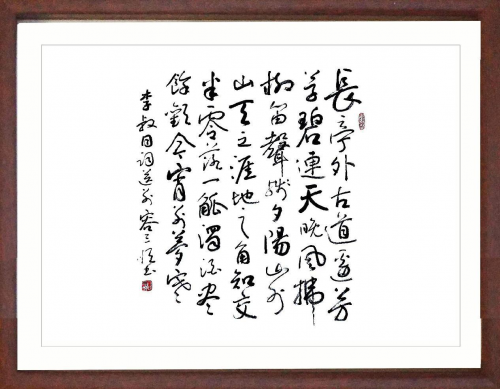 長亭外古道邊芳
草碧連天晚風拂
柳笛聲殘夕陽山外
山天之涯地之角知交
半零落一觚濁酒盡
餘歡今宵別夢寒
李叔同詞送別